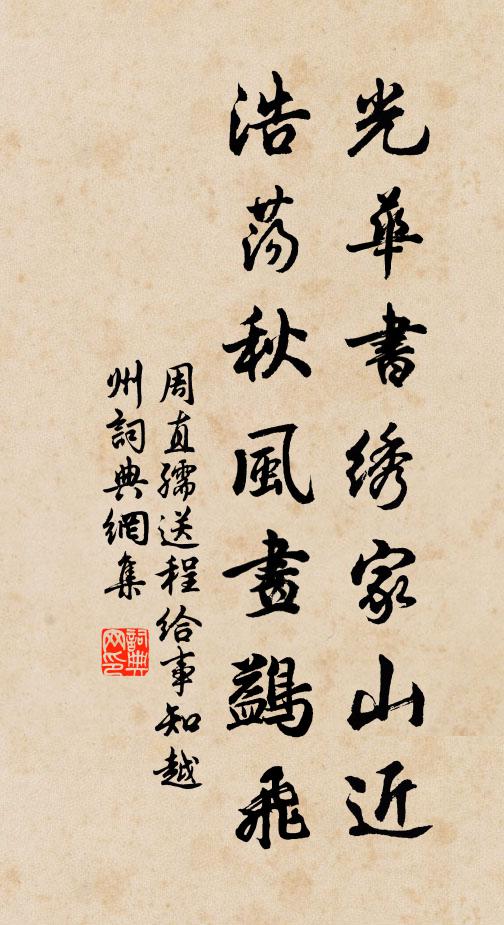 光華書綉家山近
浩蕩秋風畫鷁飛
周直孺送程給事知越
州詞典網集
詞典
网印